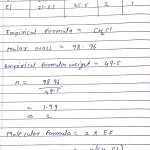 Cl 35.5 2 1
Empirical formula = CH2Cl
Molar mass = 98.96
Empirical formula weight = 49.5
n = 98.96
49.5
= 1.99
= 2
Molecular formula = 2 x E.F